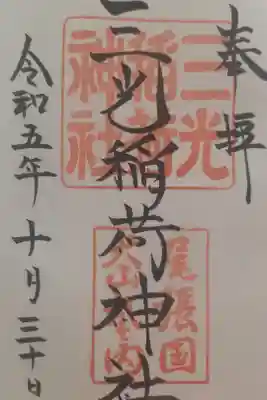 奉拝
三光稲荷神社
令和五年十月三十日
三光
稲荷
神社
尾張国
犬山城内